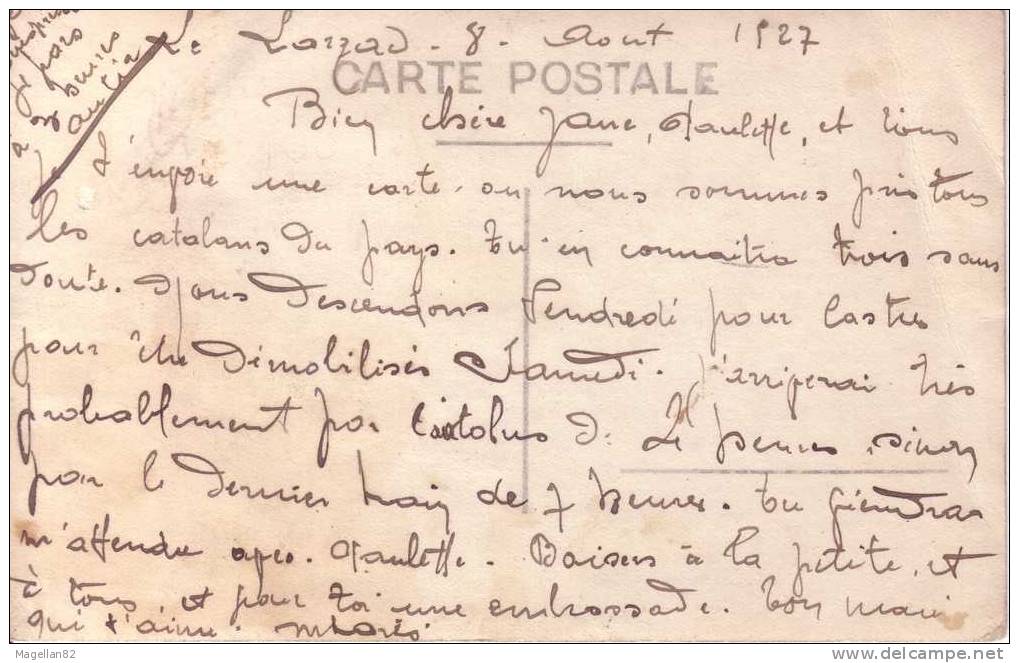 Le Larzac - 8 - Aout 1927
CARTE POSTALE
Bien chère Jane, Paulette, et tous
Je t'envoie une carte ou nous sommes pris tous
les catalans du pays. tu en connaitra trois sans
doute. Nous descendons Vendredi pour Castres
pour être démobilisés Samedi. J'arriverai très
probablement par l'autobus de 4 heures, sinon
par le dernier train de 7 heures. tu viendras
m'attendre avec Paulette. Baisers à la petite, et
à tous, et pour toi une embrassade. ton mari
qui t'aime.
Magellan82
www.delcampe.net